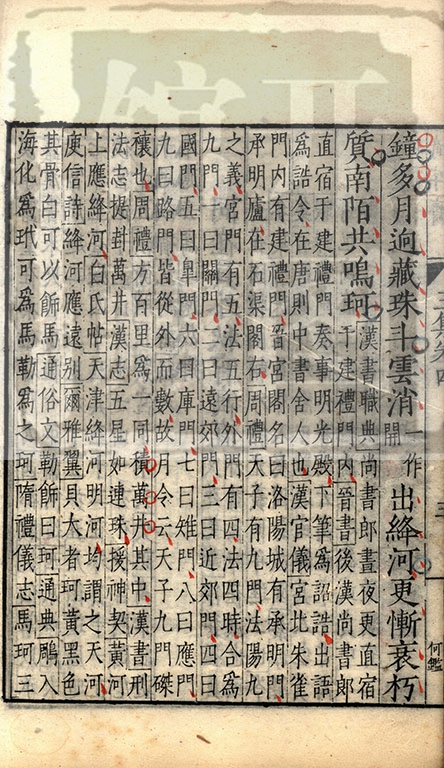 鐘多月逈藏珠斗雲消一作開出絳河更慚衰朽
質南陌共鳴珂
漢書職典尚書郎晝夜更直宿
于建禮門內晉書後漢尚書郎
直宿于建禮門奏事明光殿下筆為詔誥出語
為誥令在唐則中書舍人也漢官儀宮北朱雀
門內有建禮門晉宮閣名曰洛陽城有承明門
承明廬在石渠閣右周禮天子有九門法陽九
之義宮門有五法五行外門有四法四時合為
九門一曰關門二曰遠郊門三曰近郊門四曰
國門五曰皐門六曰庫門七曰雉門八曰應門
九曰路門皆從外而數故月令云天子九門磔
禳也周禮方百里為一同積萬井其中漢書刑
法志提封萬井漢志五星如連珠援神契黃河
上應絳河白氏帖天津絳河明河均謂之天河
庾信詩絳河應遠別爾雅翼貝大者珂黃黑色
其骨白可以飾馬通俗文勒飾曰珂通典鵰入
海化為玳可為馬勒為之珂隋禮儀志馬珂三
三
何鑑